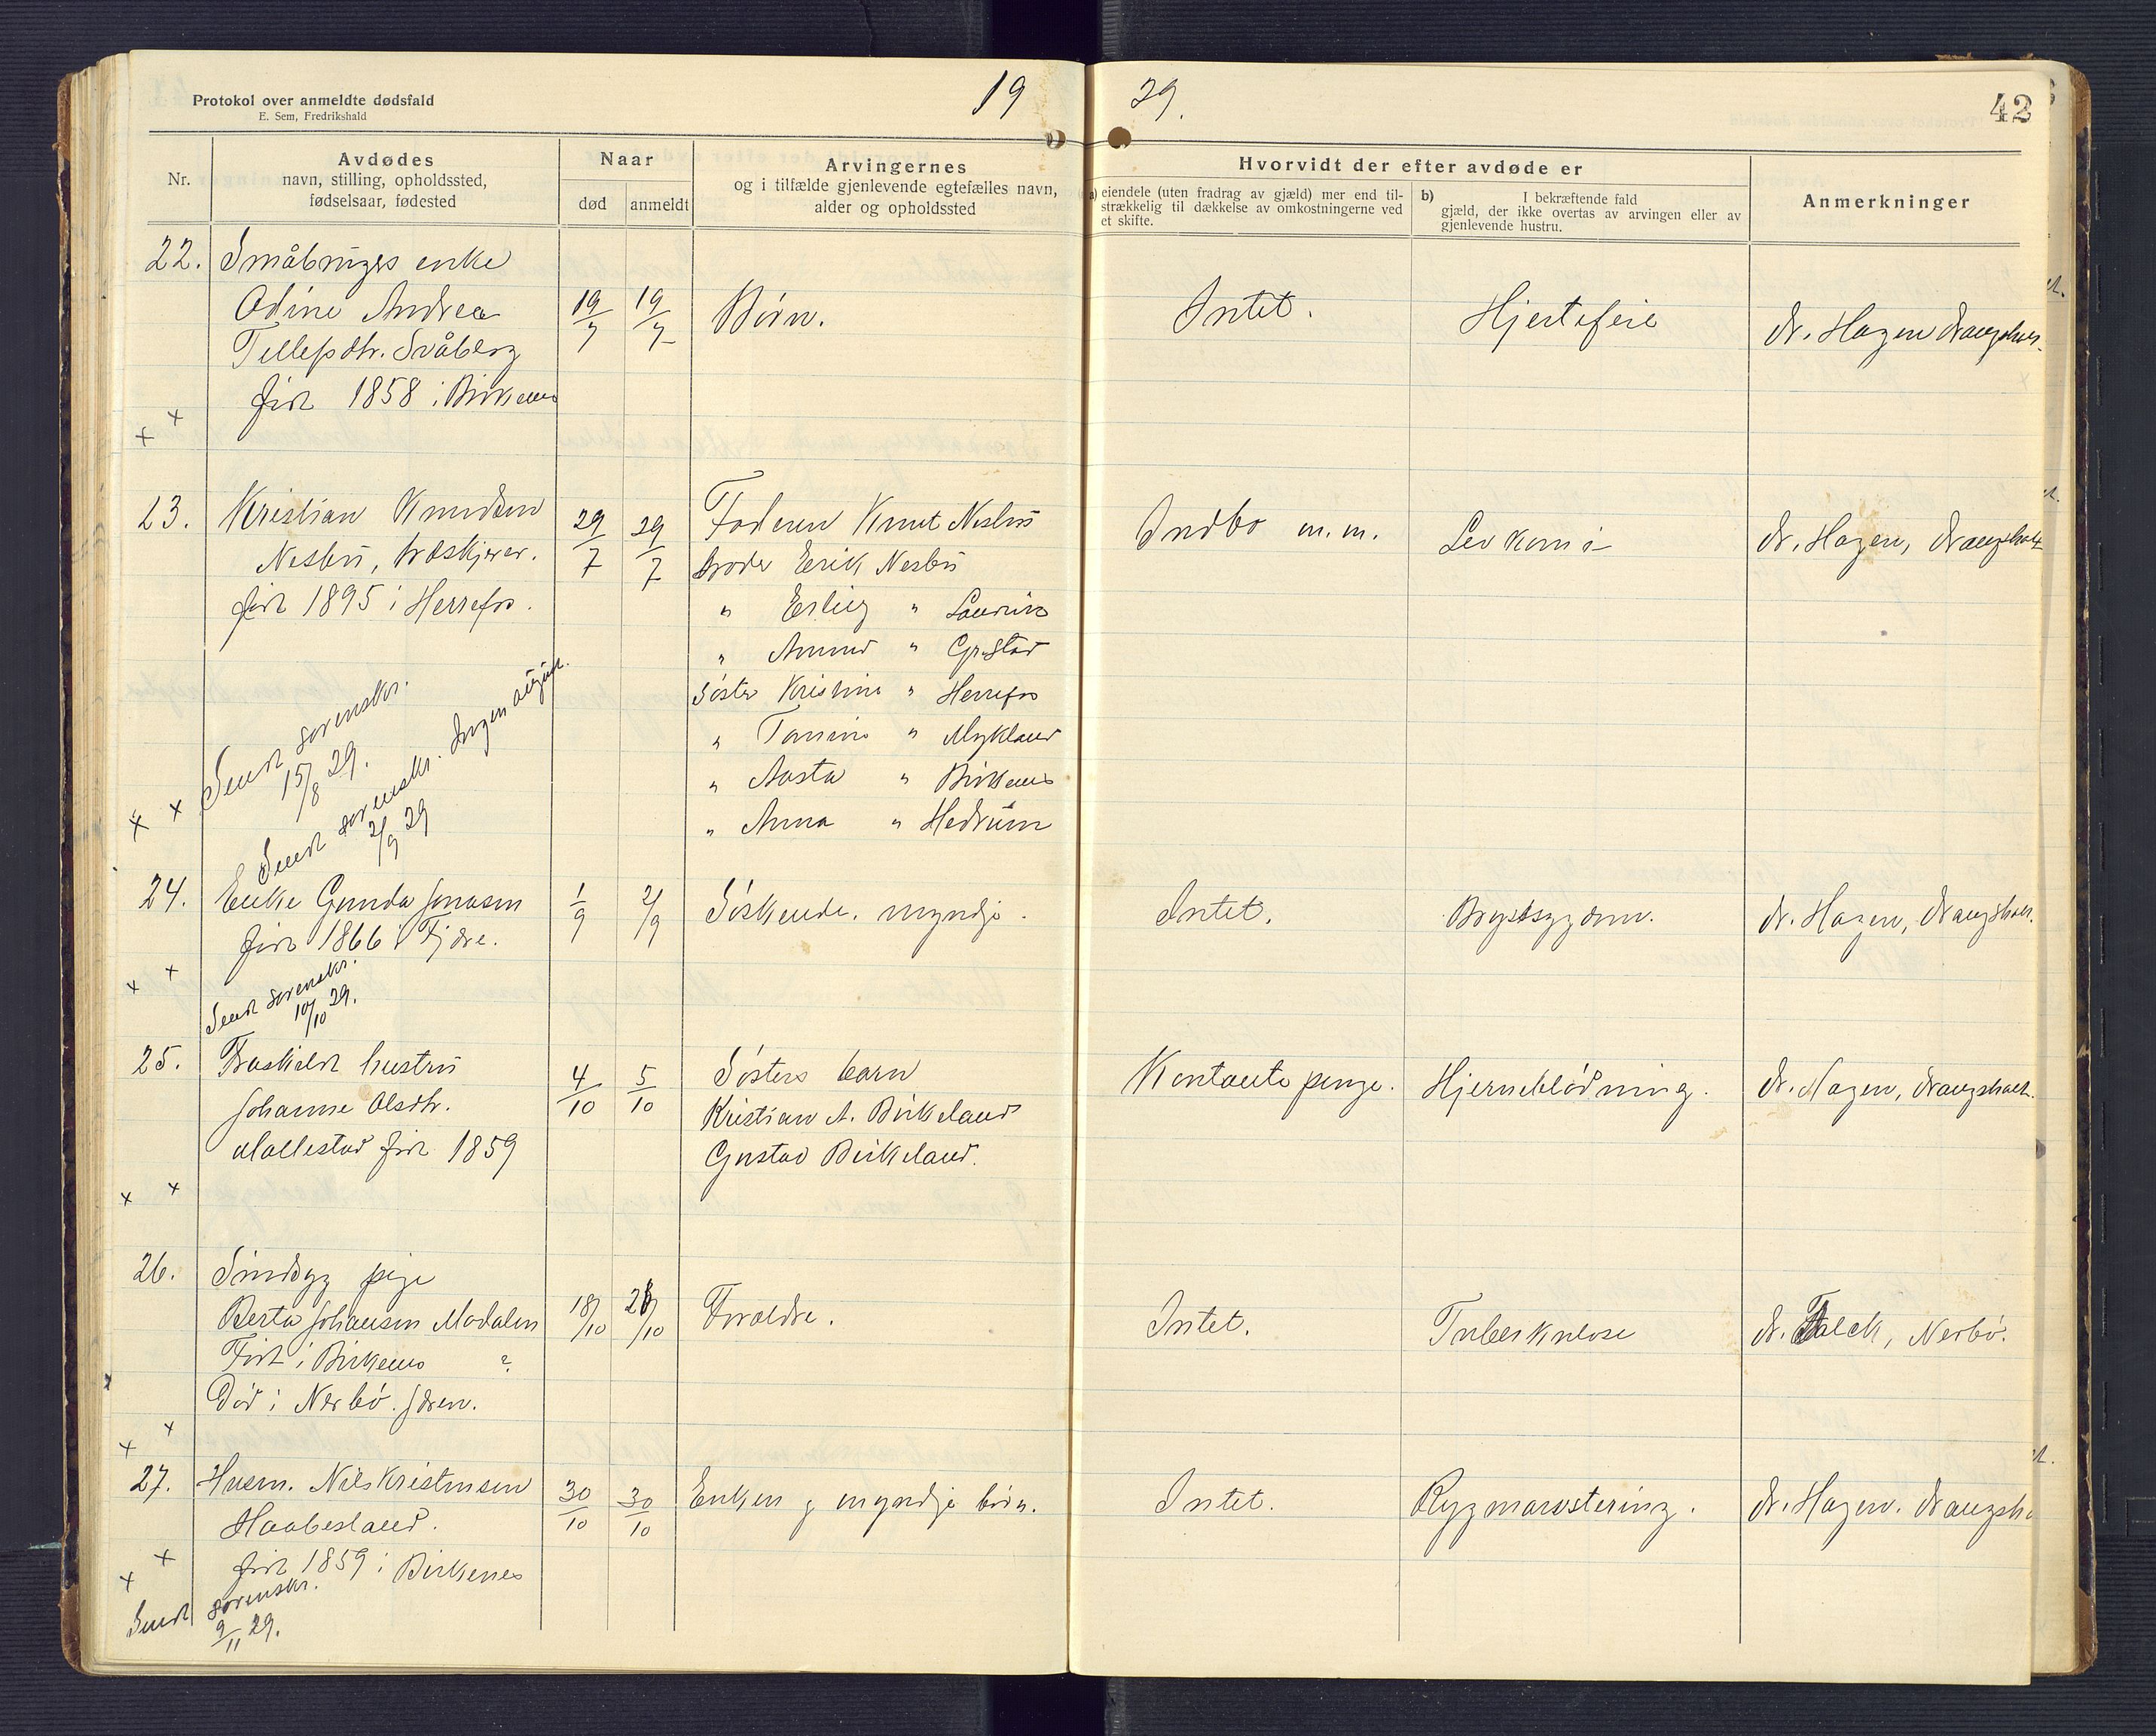 Protokol over anmeldte dødsfald
E. Sem, Fredrikshald
19 29.
42
Nr.
Avdødes
navn, stilling, opholdssted,
fødselsaar, fødested
Naar
død
anmeldt
Arvingernes
og i tilfælde gjenlevende egtefælles navn,
alder og opholdssted
Hvorvidt der efter avdøde er
a) eiendele (uten fradrag av gjæld) mer end til-
strækkelig til dækkelse av omkostningerne ved
et skifte.
b) I bekræftende fald
gjæld, der ikke overtas av arvingen eller av
gjenlevende hustru.
Anmerkninger
22. Småbrugers enke
Odine Andrea
Tellefsdtr. Svåberg
født 1858 i Birkenes
19/7 19/7
Børn.
Intet.
Hjertefeil
dr. Hagen Drangsholt
23. Kristian Knudsen
Nesbø, træskjærer.
født 1895 i Herrefos.
29/7 29/7
Faderen Knut Nesbø
broder Eerik Nesbø
" Erling " Laudviks
" Amund " Grøstad
Søster Kristine " Herrefos
" Tomine " Mykland
" Aasta " Birkenes
" Anna " Hedrum
Indbo m.m.
Levkomi
dr. Hagen, Drangsholt
Sendt sorenskr.
15/8 29.
Sendt sorenskr. Ingen avgjort.
2/9 29
24. Enke Gunda Jonasen
født 1866 i Fjære.
1/9 2/9
Søskende. myndje.
Intet.
Brystsygdom.
dr. Hagen, Drangsholt.
Sendt sorenskr.
10/10 29.
25. Fraskildt hustru
Johanne Olsdtr.
Mollestad født 1859
4/10 5/10
Søsters barn
Kristian A. Birkeland
Gustav Birkeland.
Kontante penge.
Hjerneblødning.
dr. Hagen, Drangsholt.
26. Sindsyg pige
Berta Johansen Modalen
Født i Birkenes ?
Død i Nerbø. Jæren.
18/10 21/10
Forældre.
Intet.
Tuberkulose
dr. Falck, Nerbø.
27. Husm. Nils Kristensen
Haabesland.
født 1859 i Birkenes
30/10 30/10
Enken og myndje børn.
Intet.
Rygmarvstering.
dr. Hagen. Drangsho
Sendt sorenskr.
9/11 29.